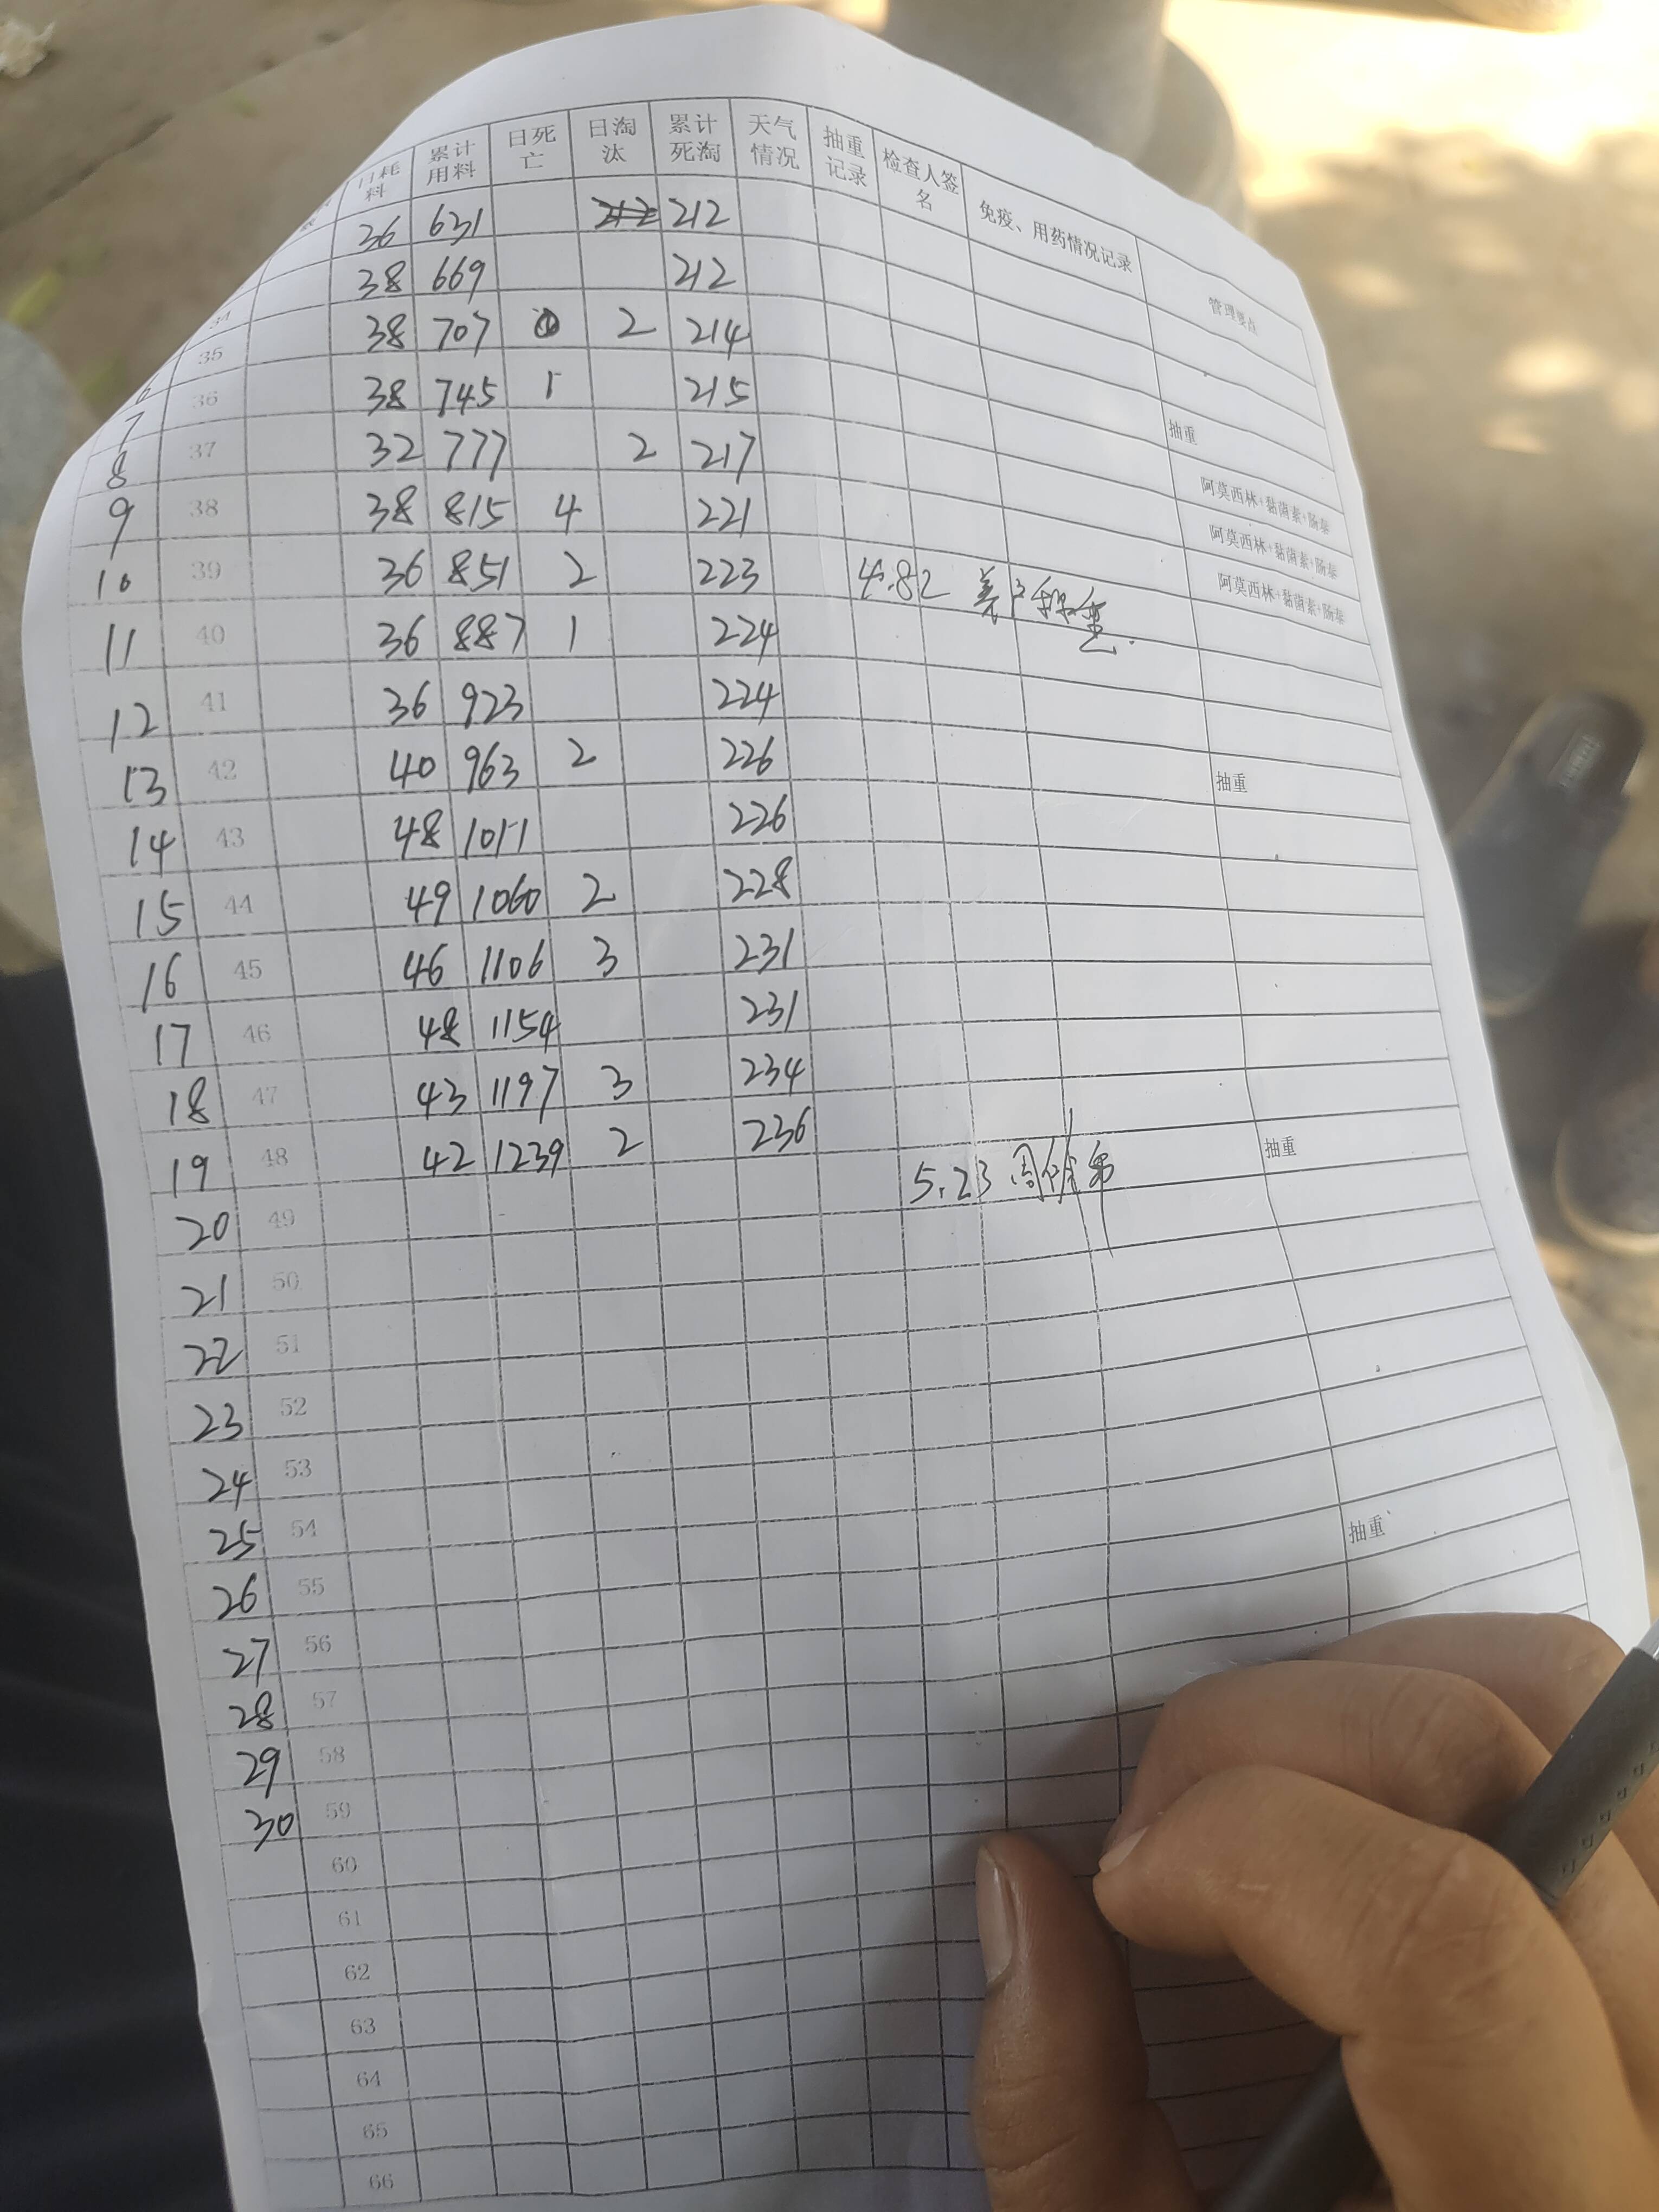 日耗料 累计用料 日死亡 日淘汰 累计死淘 天气情况 抽重记录 检查人签名 免疫、用药情况记录 管理要点
36 631 212 212
38 669 212
34 38 707 2 214
35 38 745 1 215
6 36 32 777 2 217 抽重
7 37 38 815 4 221 阿莫西林+黏菌素+肠泰
8 38 36 851 2 223 4.82 阿莫西林+黏菌素+肠泰
9 39 36 887 1 224 阿莫西林+黏菌素+肠泰
10 40 36 923 224
11 41 40 963 2 226
12 42 48 1011 226 抽重
13 43 49 1060 2 228
14 44 46 1106 3 231
15 45 48 1154 231
16 46 43 1197 3 234
17 47 42 1239 2 236
18 48 5.23 抽重
19 49
20 50
21 51
22 52
23 53
24 54
25 55 抽重
26 56
27 57
28 58
29 59
30 60
61
62
63
64
65
66